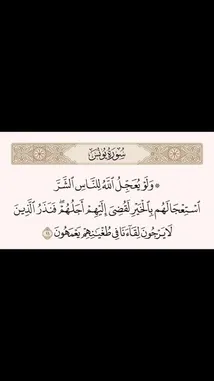 سُورَةُ يُونُسَ
۞ وَلَوْ يُعَجِّلُ ٱللَّهُ لِلنَّاسِ ٱلشَّرَّ
ٱسْتِعْجَالَهُم بِٱلْخَيْرِ لَقُضِىَ إِلَيْهِمْ أَجَلُهُمْ ۖ فَنَذَرُ ٱلَّذِينَ
لَا يَرْجُونَ لِقَآءَنَا فِى طُغْيَـٰنِهِمْ يَعْمَهُونَ ١١